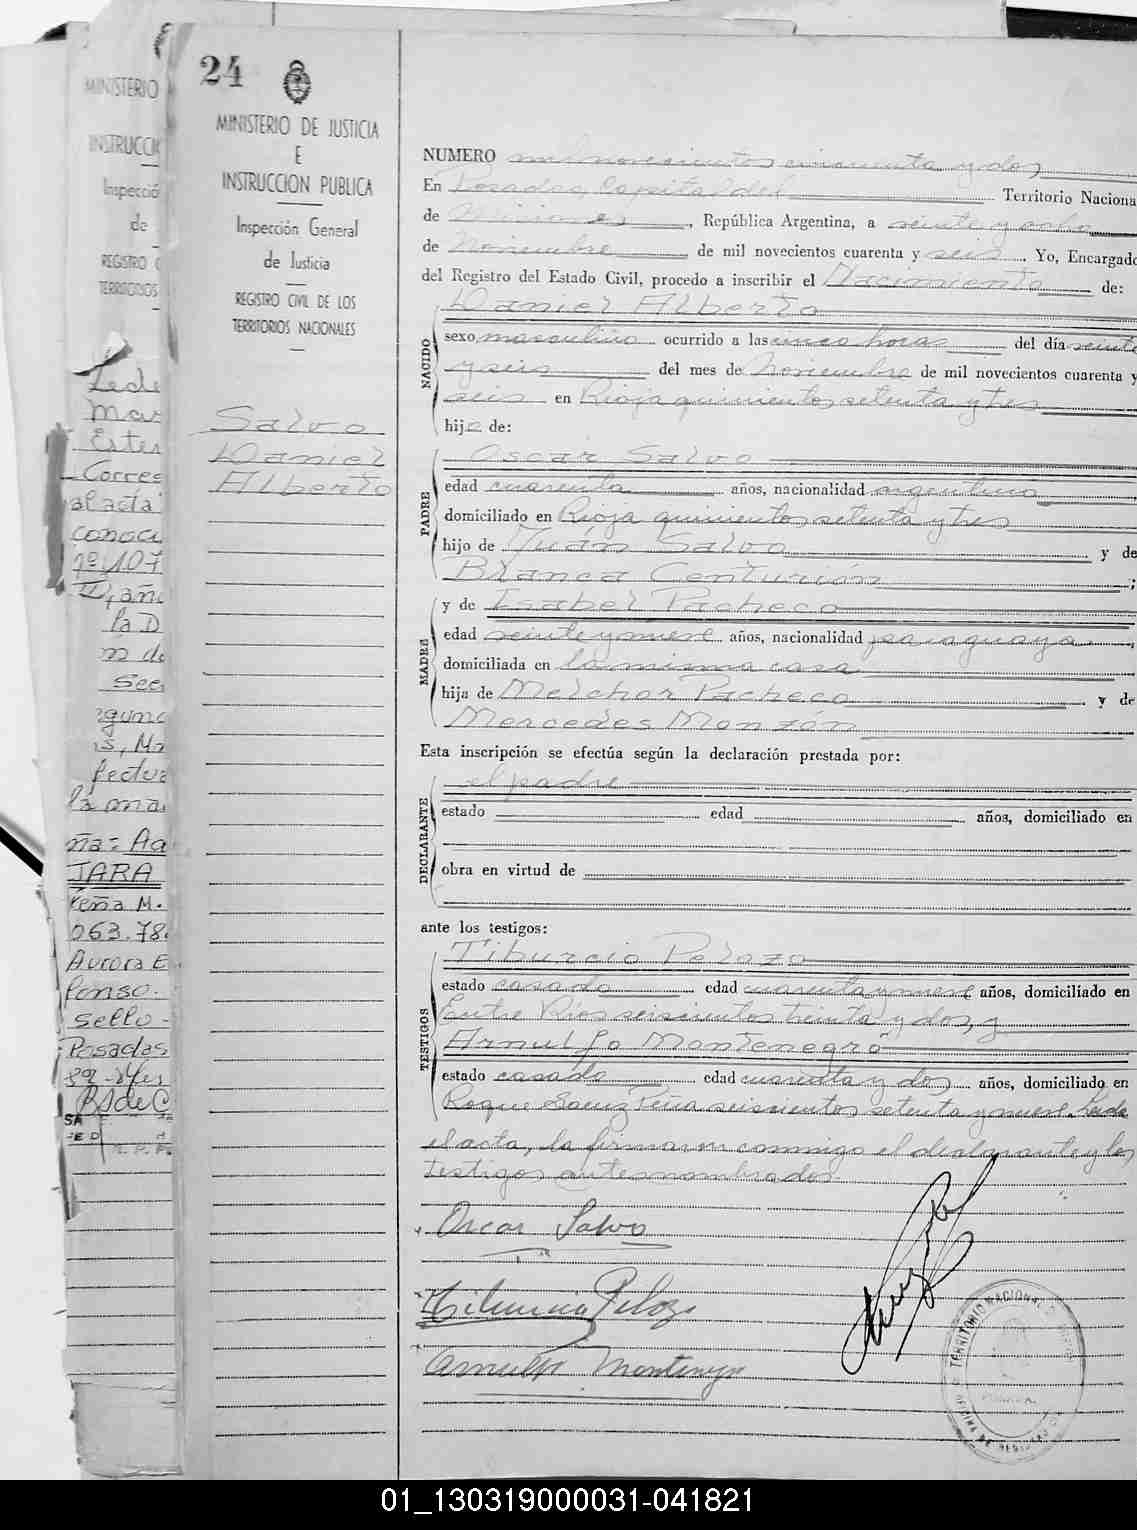 24
MINISTERIO DE JUSTICIA
E
INSTRUCCION PUBLICA
Inspección General
de Justicia
REGISTRO CIVIL DE LOS
TERRITORIOS NACIONALES
Salvo
Daniel
Alberto
NUMERO mil novecientos cincuenta y dos
En Posadas, Capital del Territorio Naciona
de Misiones, República Argentina, a veinte y ocho
de Noviembre de mil novecientos cuarenta y seis. Yo, Encargado
del Registro del Estado Civil, procedo a inscribir el Nacimiento de:
NACIDO
Daniel Alberto
sexo masculino ocurrido a las cinco horas del día veinte
y seis del mes de Noviembre de mil novecientos cuarenta y
seis en Rioja quinientos setenta y tres
hijo de:
PADRE
Oscar Salvo
edad cuarenta años, nacionalidad argentino
domiciliado en Rioja quinientos setenta y tres
hijo de Juán Salvo y de
Blanca Centurión;
MADRE
y de Isabel Pacheco
edad veinte y nueve años, nacionalidad paraguaya,
domiciliada en la misma casa
hija de Melchor Pacheco y de
Mercedes Monzón
Esta inscripción se efectúa según la declaración prestada por:
DECLARANTE
el padre
estado edad años, domiciliado en
obra en virtud de
ante los testigos:
TESTIGOS
Tiburcio Pelozo
estado casado edad cuarenta y nueve años, domiciliado en
Entre Rios seiscientos treinta y dos, y
Arnulfo Montenegro
estado casado edad cuarenta y dos años, domiciliado en
Roque Saenz Peña seiscientos setenta y nueve. Leida
el acta, la firmaron conmigo el declarante y los
testigos antes nombrados.
Oscar Salvo
Tiburcio Pelozo
Arnulfo Montenegro
TERRITORIO NACIONAL
MINISTERIO
INSTRUCCI
Inspecció
de
REGISTRO C
TERRITORIOS
Corres
al acta
conoci
nº 107
la D
TARA
Peña M.
063.78
Aurora E
sello
Posadas
01_130319000031-041821